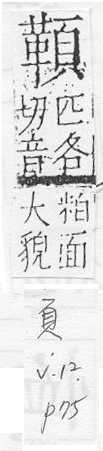 匹各
切音
粕面
大貌
頁
v.12.
p75